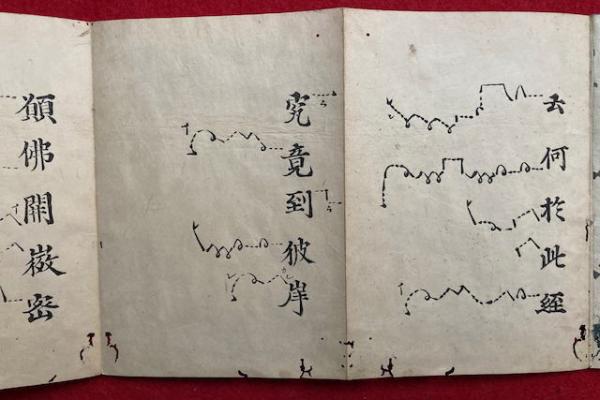 云何於此經
究竟到彼岸
願佛開微密